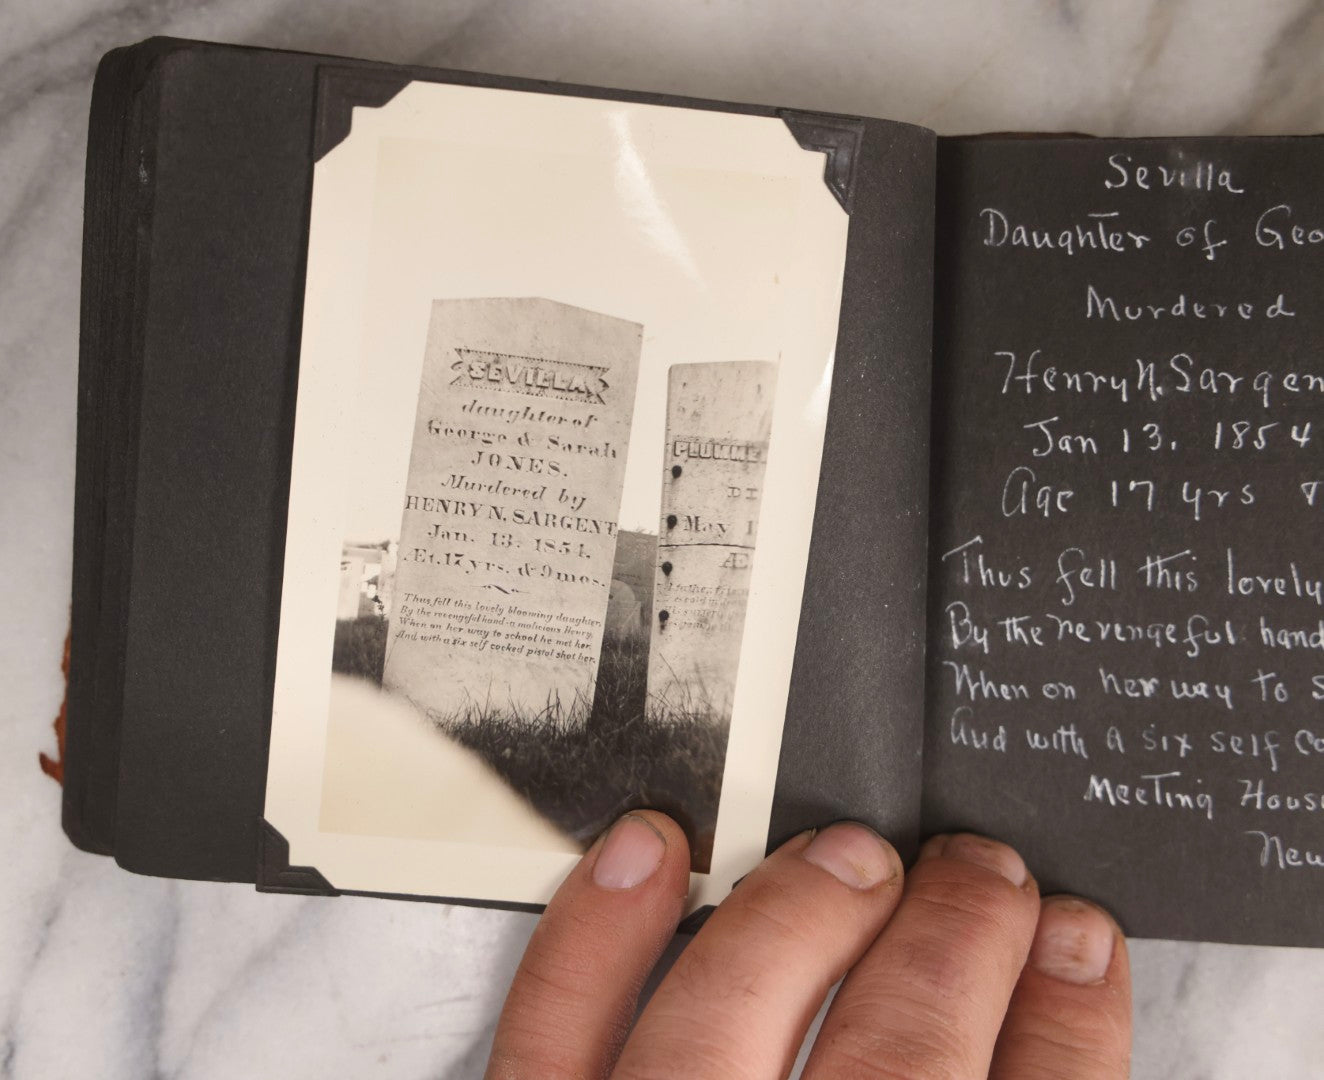 SEVILLA
daughter of
George & Sarah
JONES.
Murdered by
HENRY N. SARGENT,
Jan. 13. 1854.
Æt. 17 yrs. & 9 mos.
Thus fell this lovely blooming daughter
By the revengeful hand - a malicious Henry.
When on her way to school he met her,
And with a six self cocked pistol shot her.
PLUMME
DI
May 1
Æ
Sevilla
Daughter of Geo
Murdered
Henry N. Sargen
Jan 13. 1854
Age 17 yrs
Thus fell this lovely
By the revengeful hand
When on her way to s
And with a six self co
Meeting House
New